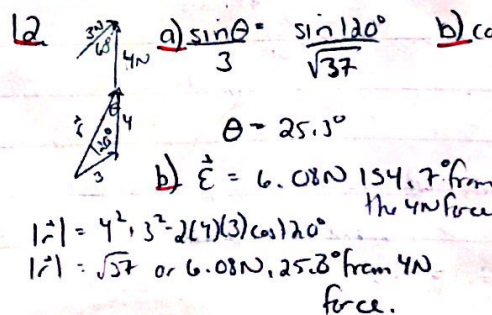 12
3N
60°
4N
θ
4
120°
3
a) sinθ = sin120°
3 √37
b) co
θ = 25.3°
b) E = 6.08N 154.7° from
the 4N force
|r| = 4² + 3² - 2(4)(3)cos120°
|r| = √37 or 6.08N, 25.3° from 4N
force.